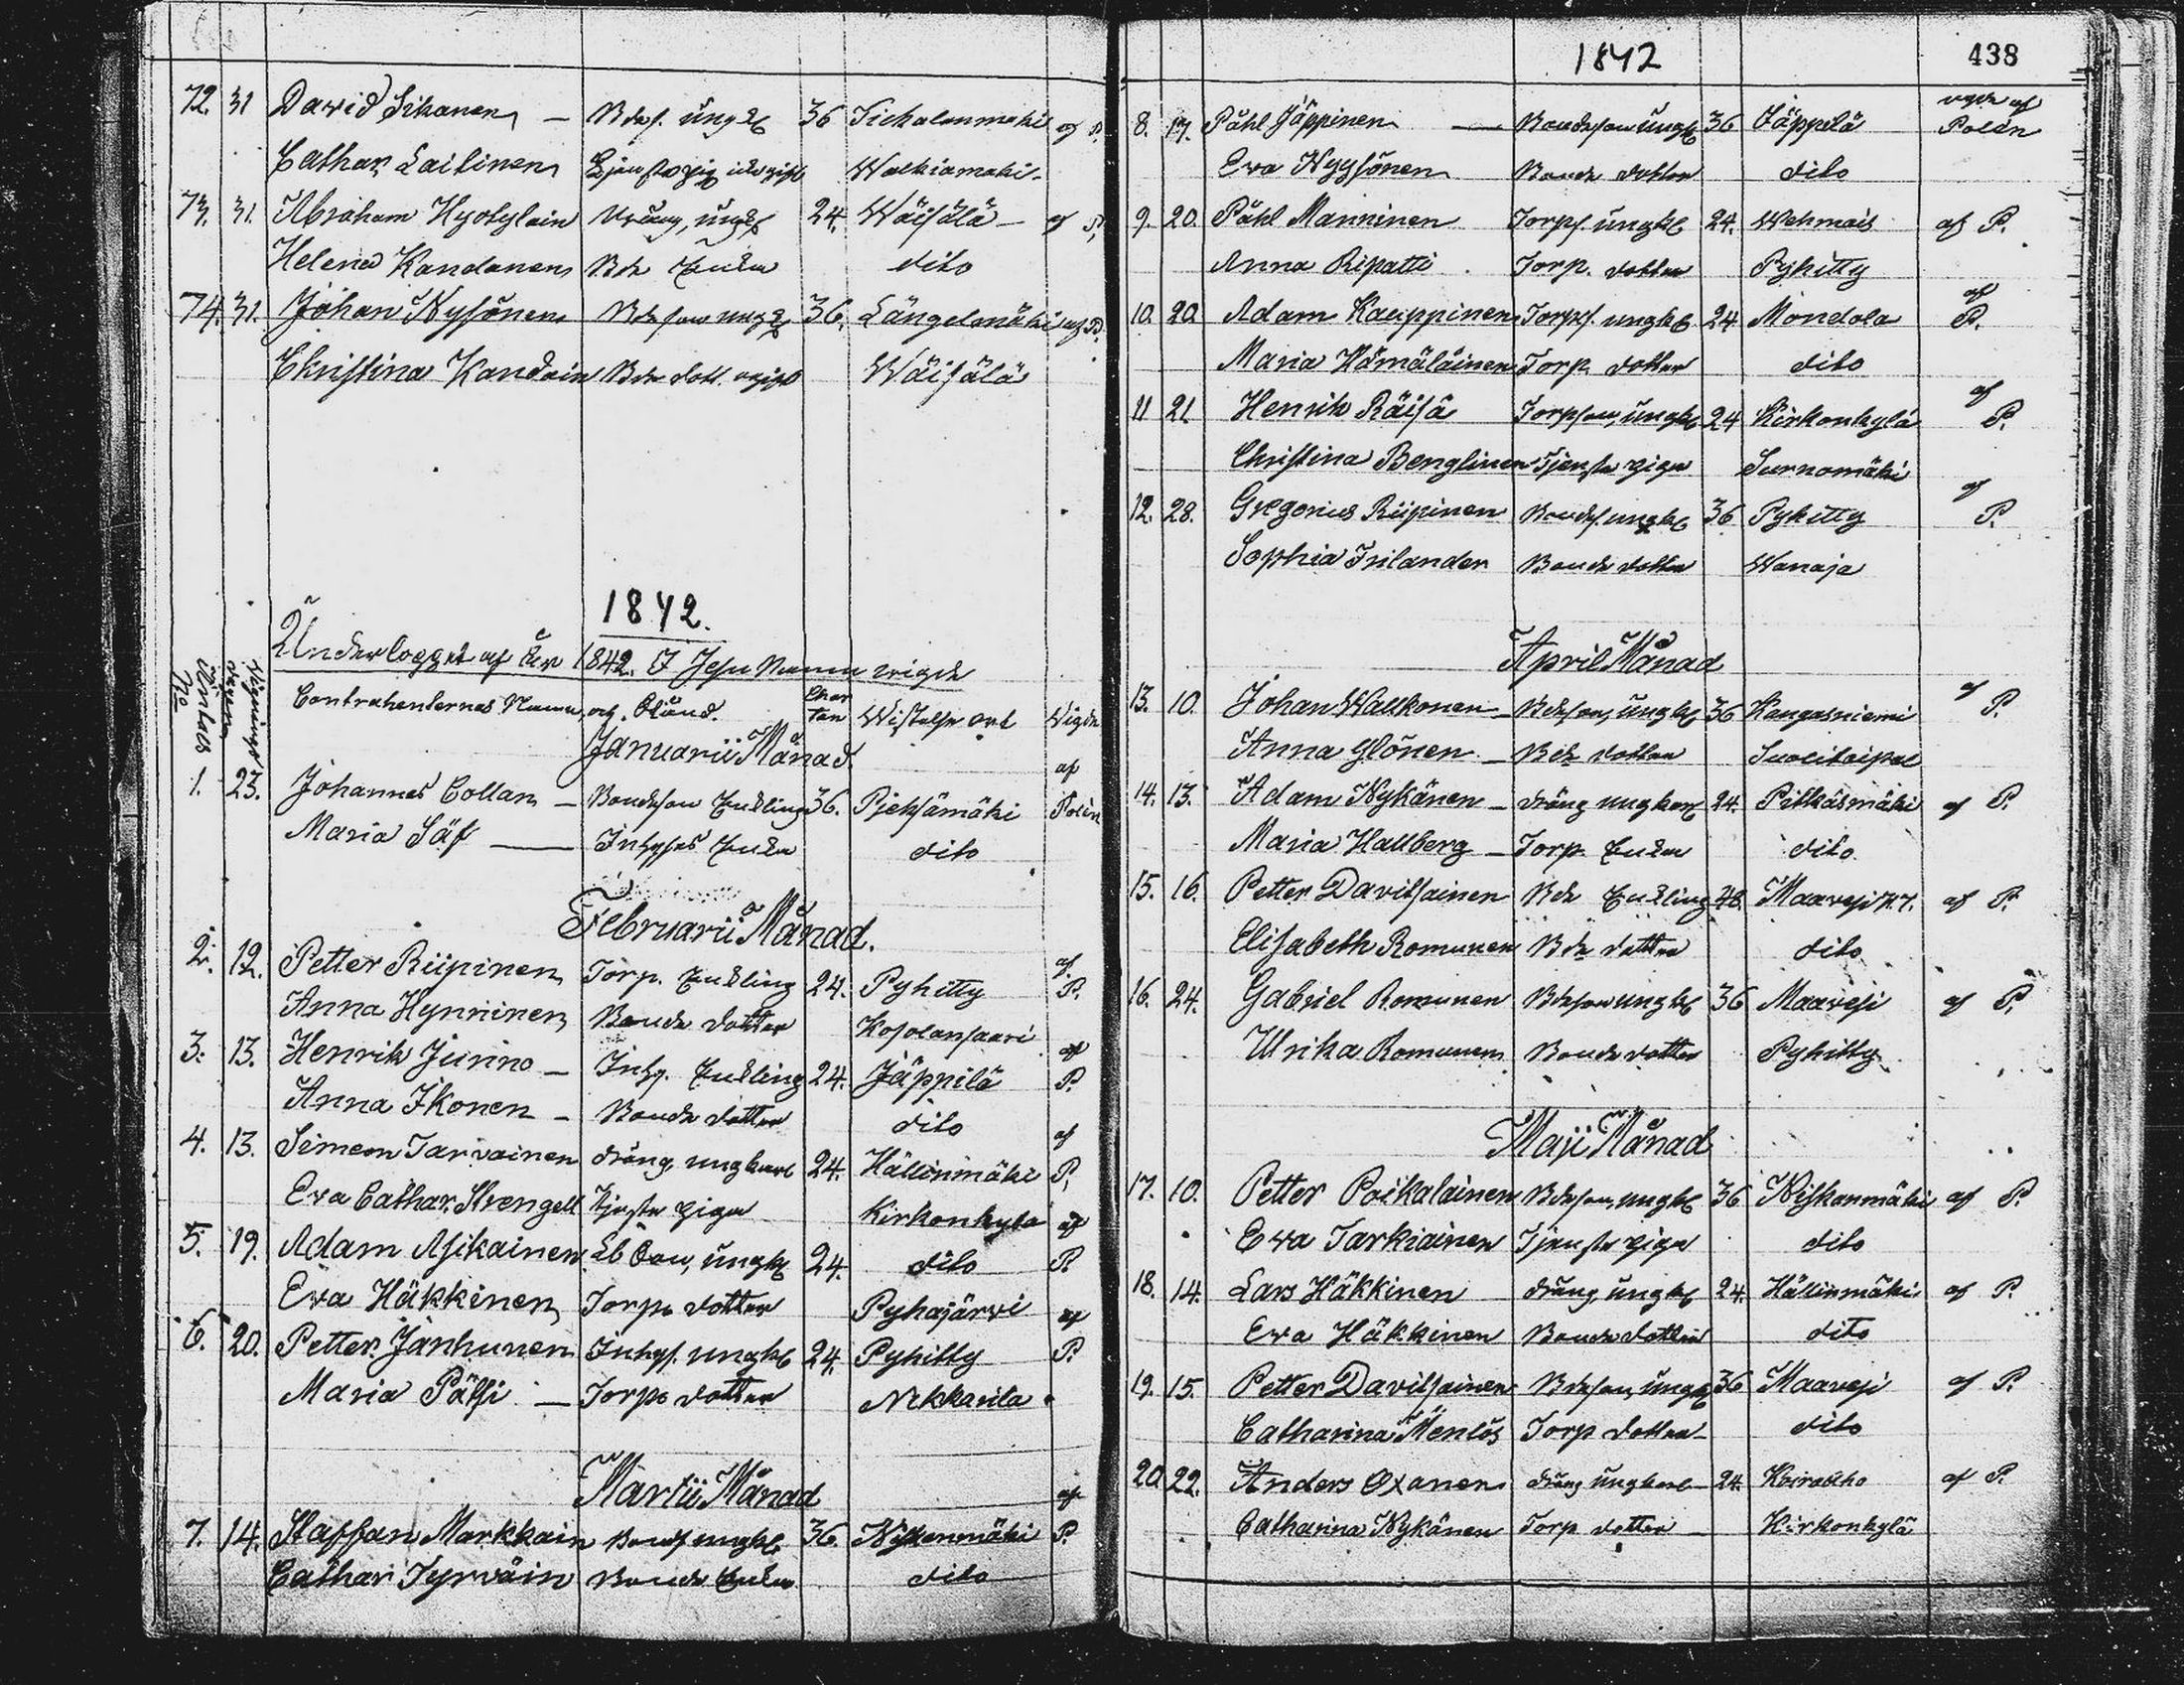 72. 31 David Sikanen — Bdes. ungk 36 Tickalanmäki af P.
Cathar. Laitinen Tjenstepig Walkiamäki
73. 31. Abraham Hyötyläin dräng, ungk 24. Wäisälä af P.
Helena Kandanen Bde Enka dito
74. 31. Johan Nysönen Bde son ungk 36. Längelmäki af P.
Christina Kandain Bde dott. Wäisälä
1842.
Underlogget af år 1842. I Jesu Namn vigde
No Wintra Wignings dagen Contrahenternas Namn, och Stånd. Char ten Wistelse ort Wigde
Januarii Månad.
1. 23. Johannes Collan — Bondeson Enkling 36. Pieksämäki af Polén
Maria Säf — Inhyses Enka dito
Februarii Månad.
2. 12. Petter Riipinen Torp. Enkling 24. Pyhitty af P.
Anna Hynninen Bonde dotter Kosolansaari
3. 13. Henrik Jurino — Inhy. Enkling 24. Jäppilä af P.
Anna Ikonen — Bonde dotter dito
4. 13. Simeon Tarvainen dräng ungkarl 24. Hällinmäki af P.
Eva Cathar. Strengell Tjenste piga Kirkonkylä
5. 19. Adam Asikainen son, ungk 24. dito af P.
Eva Häkkinen Torp. dotter Pyhäjärvi
6. 20. Petter Janhunen Inhys. ungk 24. Pyhitty af P.
Maria Pässi — Torp. dotter Nekkarila
Martii Månad
7. 14. Staffan Markkain Bonds ungk 36. Niskanmäki af P.
Cathar. Tyrväin Bonde Enka dito
1842 438
8. 17. Påhl Jäppinen — Bondeson ungk 36 Jäppilä vigde af Polén
Eva Nyysönen Bonde dotter dito
9. 20. Påhl Manninen Torps. ungk 24. Wehmais af P.
Anna Ripatti Torp. dotter Pyhitty
10. 20. Adam Kauppinen Torps. ungk 24. Mondola af P.
Maria Hämäläinen Torp. dotter dito
11 21. Henrik Räisä Torpson, ungk 24 Kirkonkylä af P.
Christina Benglinen Tjenste piga Surnomäki
12. 28. Gregorius Riipinen Bondes. ungk 36 Pyhitty af P.
Sophia Inlander Bonde dotter Wanaja
April Månad
13. 10. Johan Walkonen — Bdeson, ungk 36 Kangasniemi af P.
Anna Ylönen — Bde dotter Suolitaipal
14. 13. Adam Nykänen — dräng ungkarl 24. Pitkäsmäki af P.
Maria Hallberg — Torp. Enka dito
15. 16. Petter Davitsainen Bde Enkling 48. Maavesi N.7. af P.
Elisabeth Romunen Bde dotter dito
16. 24. Gabriel Romunen Bdeson ungk 36 Maavesi af P.
Ulrika Romunen Bonde dotter Pyhitty
Maji Månad
17. 10. Petter Poikalainen Bdeson, ungk 36 Niskanmäki af P.
Eva Tarkiainen Tjenste piga dito
18. 14. Lars Häkkinen dräng, ungk 24. Hällinmäki af P.
Eva Häkkinen Bonde dotter dito
19. 15. Petter Davitsainen Bdeson, ungk 36 Maavesi af P.
Catharina Menlös Torp dotter dito
20 22. Anders Oxanen dräng ungkarl 24. Koiraaho af P.
Catharina Nykänen Torp dotter — Kirkonkylä